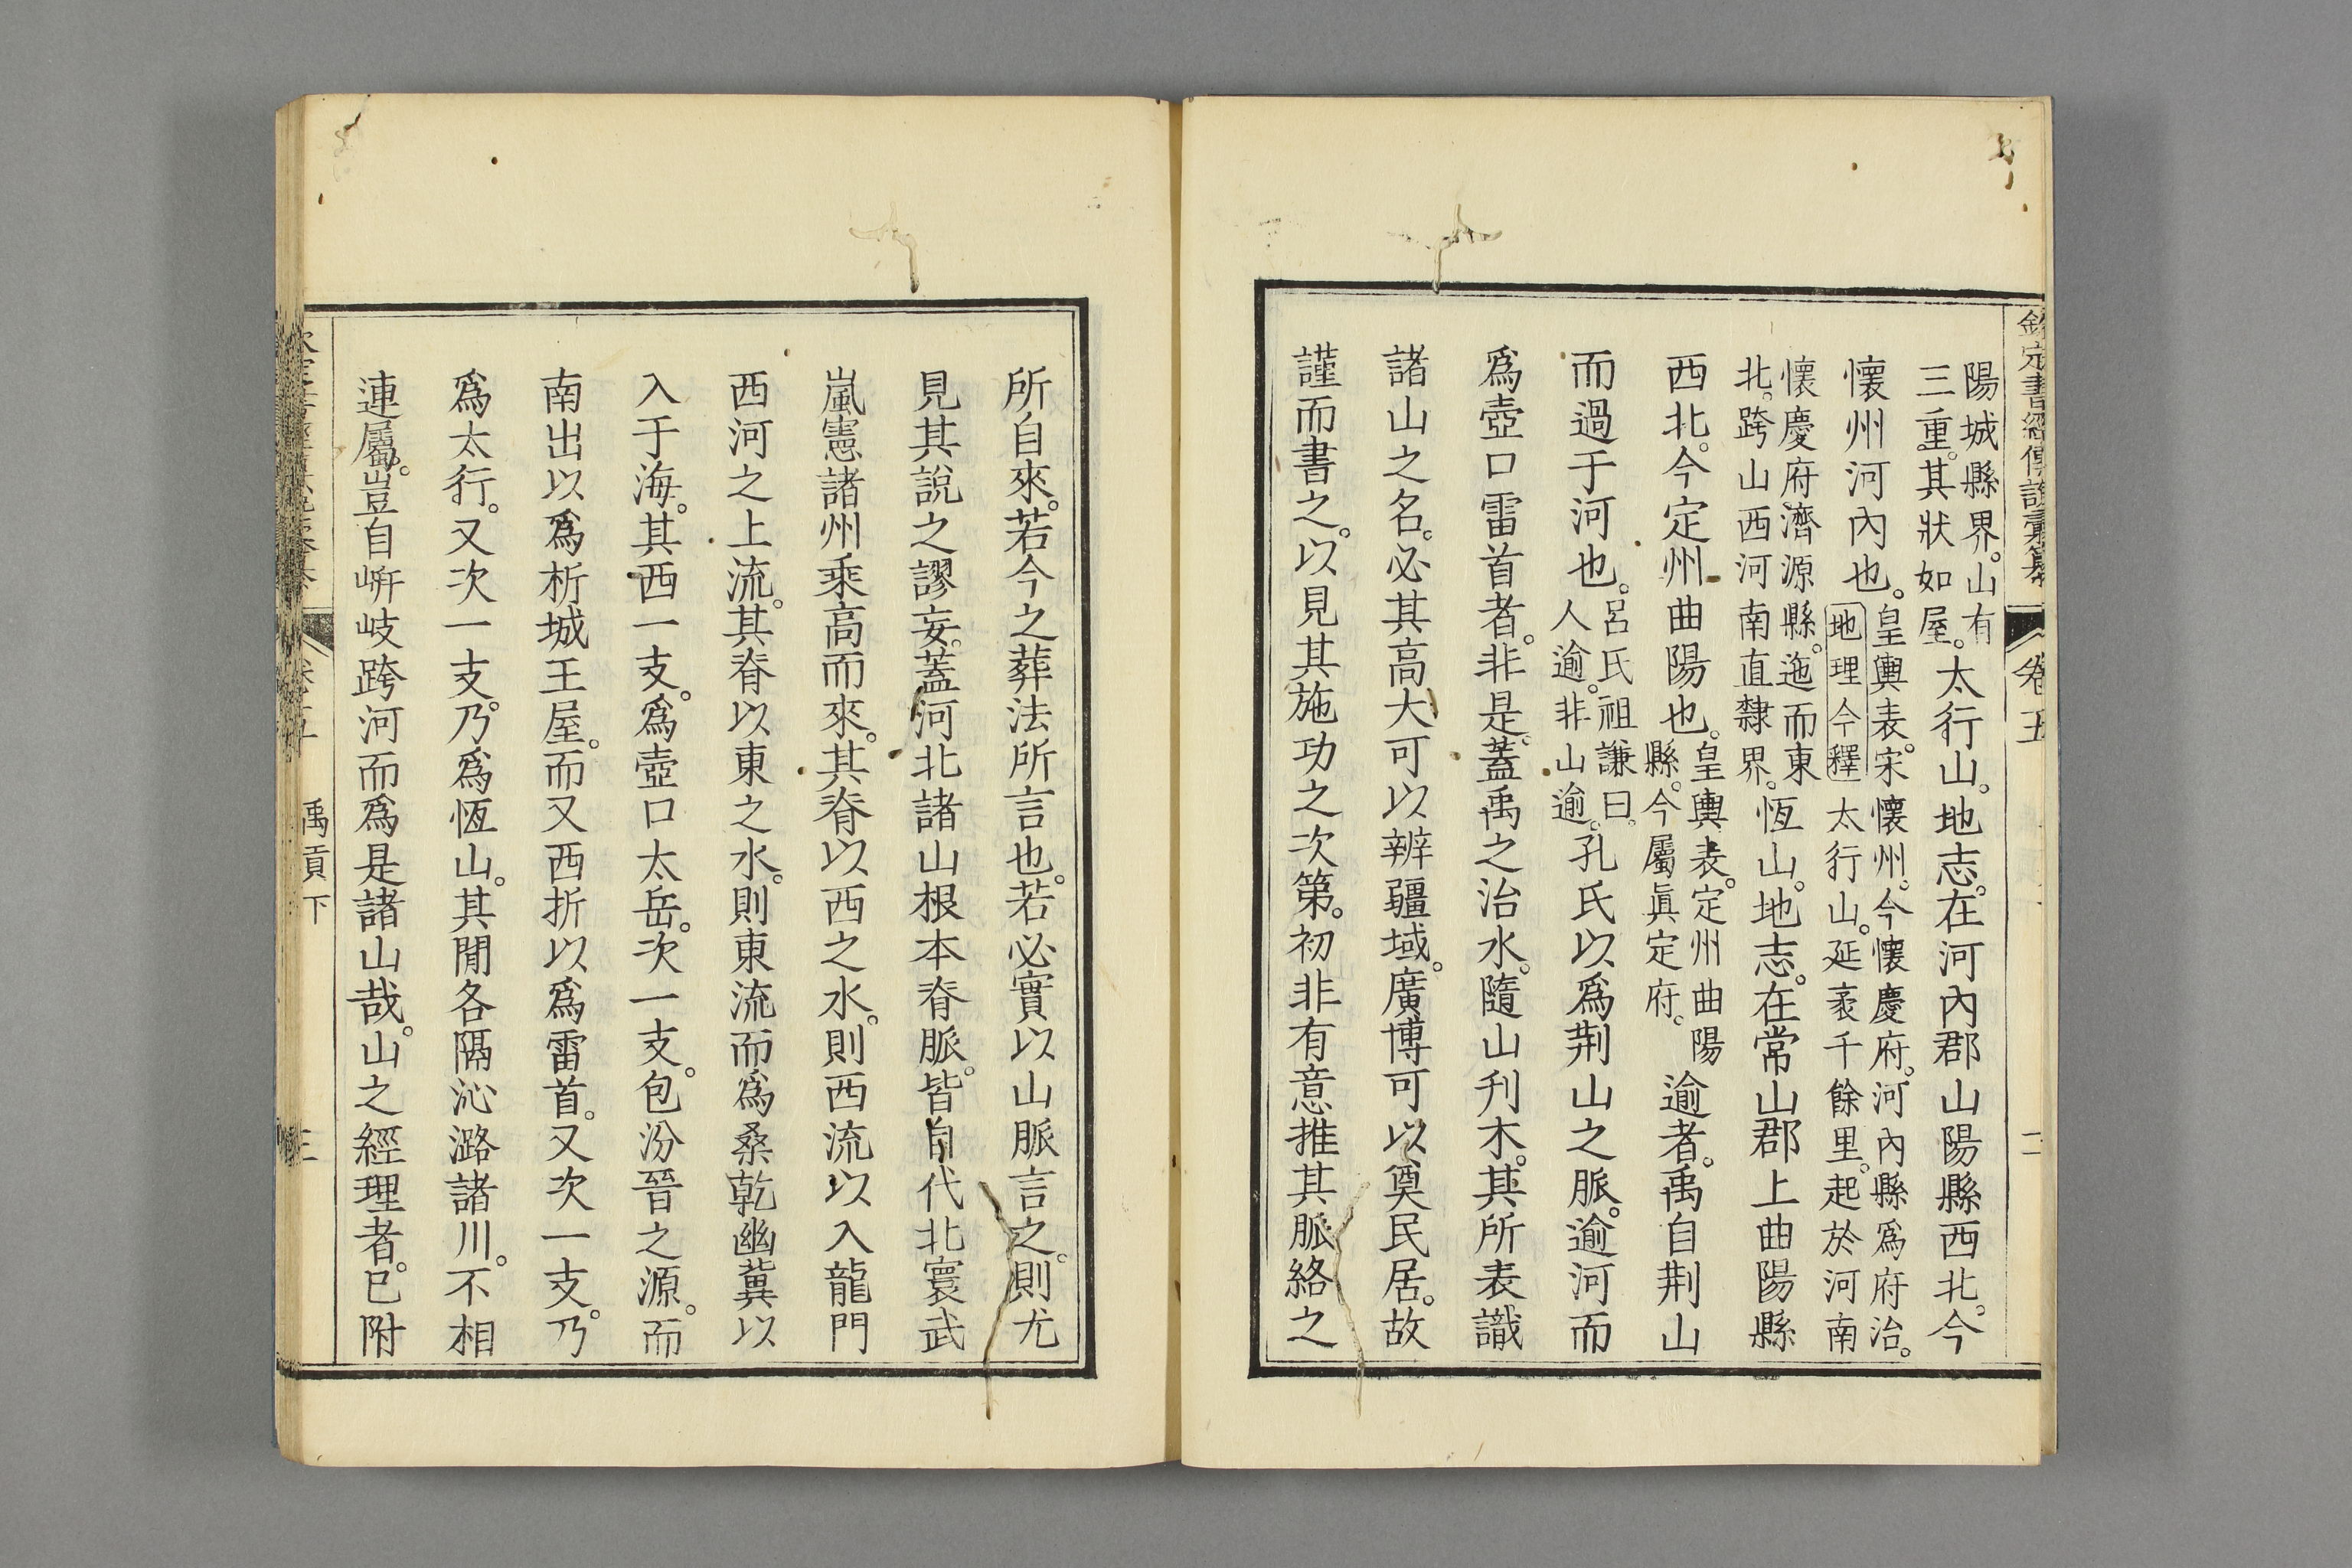 欽定書經傳說彙纂 卷五 二
陽城縣界。山有
三重。其狀如屋。太行山。地志。在河內郡山陽縣西北。今
懷州河內也。皇輿表。宋懷州。今懷慶府。河內縣爲府治。
地理今釋 太行山。延袤千餘里。起於河南
懷慶府濟源縣。迤而東
北。跨山西河南直隸界。恆山。地志。在常山郡上曲陽縣
西北。今定州曲陽也。皇輿表。定州曲陽
縣。今屬眞定府。逾者。禹自荆山
而過于河也。呂氏祖謙曰。
人逾。非山逾。孔氏以爲荆山之脈。逾河而
爲壺口雷首者。非是。蓋禹之治水。隨山刋木。其所表識
諸山之名。必其高大可以辨疆域。廣博可以奠民居。故
謹而書之。以見其施功之次第。初非有意推其脈絡之
所自來。若今之葬法所言也。若必實以山脈言之。則尤
見其說之謬妄。蓋河北諸山根本脊脈。皆自代北寰武
嵐憲諸州乘高而來。其脊以西之水。則西流以入龍門
西河之上流。其脊以東之水。則東流而爲桑乾幽冀以
入于海。其西一支。爲壺口太岳。次一支。包汾晉之源。而
南出以爲析城王屋。而又西折以爲雷首。又次一支。乃
爲太行。又次一支。乃爲恆山。其閒各隔沁潞諸川。不相
連屬。豈自岍岐跨河而爲是諸山哉。山之經理者。已附
禹貢下 三